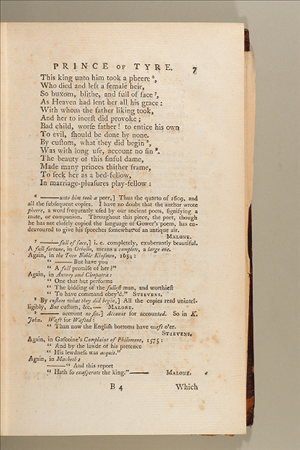 PRINCE OF TYRE. 7
This king unto him took a pheere⁶,
Who died and left a female heir,
So buxom, blithe, and full of face⁷,
As Heaven had lent her all his grace:
With whom the father liking took,
And her to incest did provoke;
Bad child, worse father! to entice his own
To evil, should be done by none.
By custom, what they did begin⁸,
Was with long use, account no sin⁹.
The beauty of this sinful dame,
Made many princes thither frame,
To seek her as a bed-fellow,
In marriage-pleasures play-fellow:
⁶ ——unto him took a peer,] Thus the quarto of 1609, and
all the subsequent copies. I have no doubt that the author wrote
pheere, a word frequently used by our ancient poets, signifying a
mate, or companion. Throughout this piece, the poet, though
he has not closely copied the language of Gower's poem, has en-
deavoured to give his speeches somewhat of an antique air.
MALONE.
⁷ ——full of face,] i. e. completely, exuberantly beautiful.
A full fortune, in Othello, means a complete, a large one.
Again, in the Two Noble Kinsmen, 1634:
“ —— But have you
“ A full promise of her?”
Again, in Antony and Cleopatra:
“ One that but performs
“ The bidding of the fullest man, and worthiest
“ To have command obey'd.” STEEVENS.
⁸ By custom what they did begin,] All the copies read unintel-
ligibly, But custom, &c.— MALONE.
⁹ —— account no sin.] Account for accounted. So in K.
John. Waft for Wafted:
“ Than now the English bottoms have waft o'er.
STEEVENS.
Again, in Gascoine's Complaint of Philomene, 1575:
“ And by the lawde of his pretence
“ His lewdness was acquit.”
Again, in Macbeth:
——“ And this report
“ Hath so exasperate the king.”—— MALONE.
B 4 Which